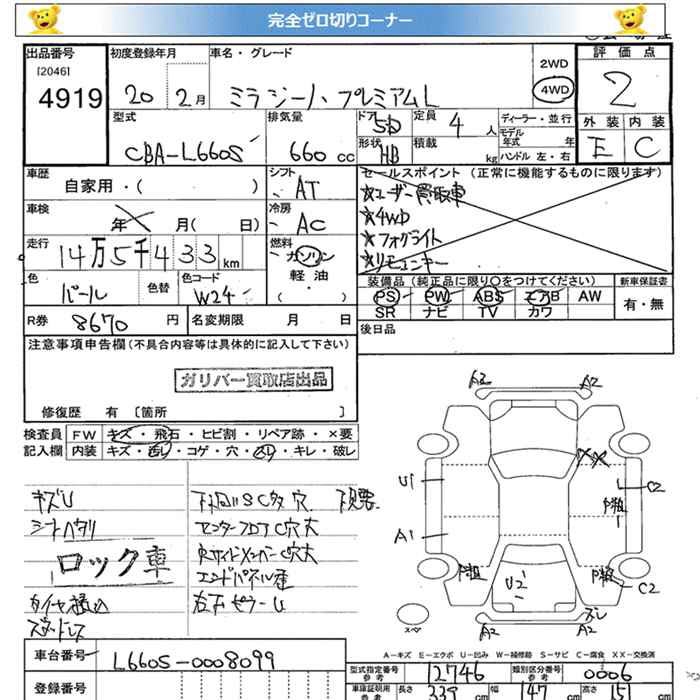 完全ゼロ切りコーナー
出品番号 初度登録年月 車名・グレード 評価点
[2046]
4919 20 2月 ミラ ジーノ プレミアムL 2WD 4WD 2
型式 排気量 ドア 5D 定員 4人 ディーラー・並行 外装 内装
CBA-L660S 660cc 形状 HB 積載 kg モデル年式 年 ハンドル 左・右 E C
車歴 シフト セールスポイント(正常に機能するものに限ります)
自家用・( ) AT ★ユーザー買取車
車検 冷房 ★4WD
年 月( 日) AC ★フォグライト
走行 燃料 ★リモコンキー
14万5千433km ガソリン
色 色替 色コード 軽油 装備品(純正品に限り○をつけてください) 新車保証書
パール W24 ( ・ ) PS PW ABS エアB AW 有・無
R券 8670円 名変期限 月 日 SR ナビ TV カワ
注意事項申告欄(不具合内容等は具体的に記入して下さい) 後日品
ガリバー買取店出品
修復歴 有 〔箇所 〕
検査員 FW キズ・飛石・ヒビ割・リペア跡・×要
記入欄 内装 キズ・汚レ・コゲ・穴・スレ・キレ・破レ
A2 A2
キズU 下回りSC多 穴 下見要 U1 XX C2
シートヘタリ センターフロアC穴大
ロック車 Rサイドメンバーc穴大 A1
エンドパネル歪 U2 C2
スタッドレス 右下ピラーU
スペア A2 A2 ズレ
A-キズ E-エクボ U-凹み W-補修跡 S-サビ C-腐食 XX-交換済
車台番号 L660S-0008099 型式指定番号 参考 12746 類別区分番号 参考 0006
登録番号 車庫証明用 参考 長さ 339cm 幅 147cm 高さ 151